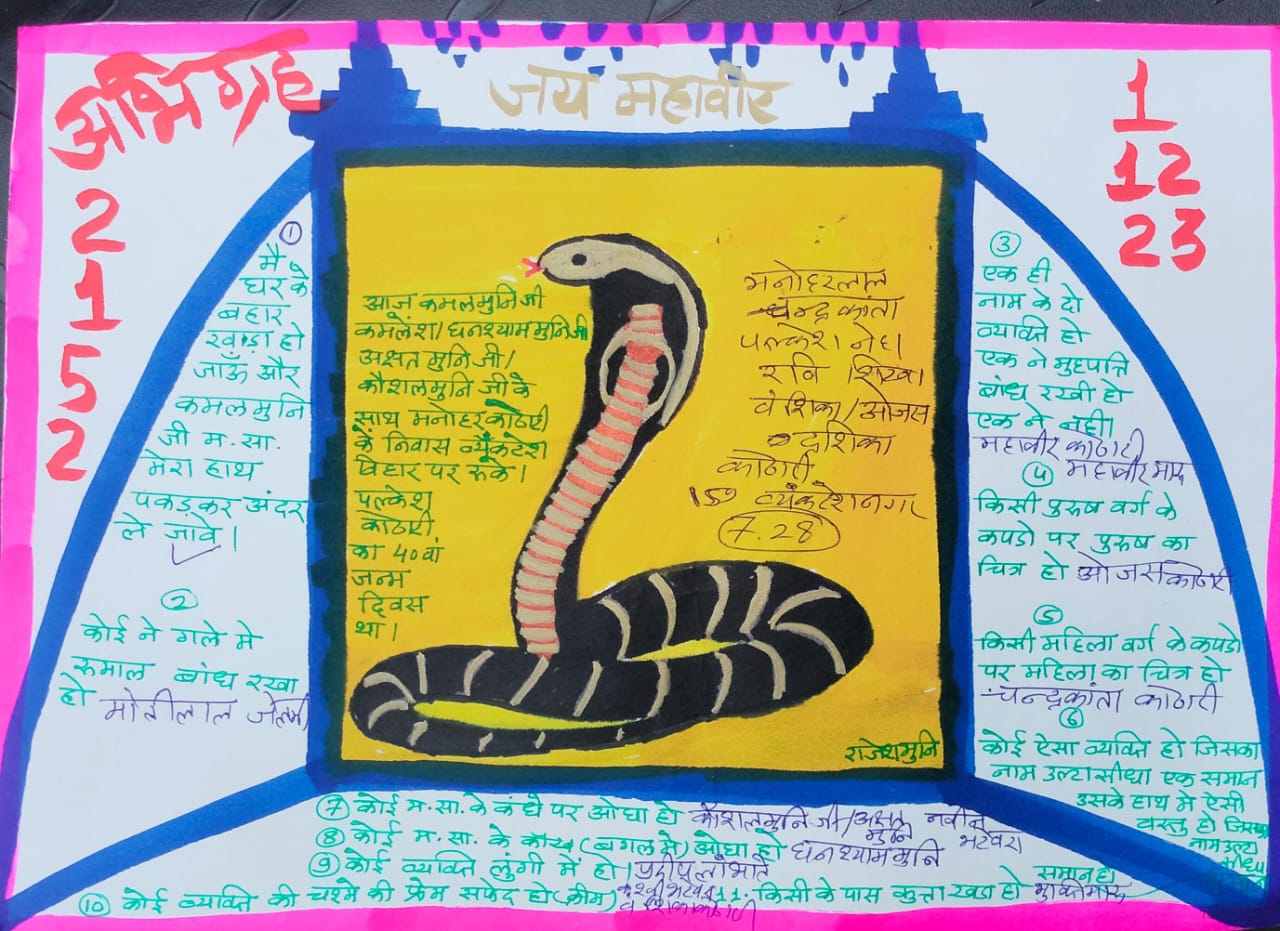 अभिग्रह
जय महावीर
2
1
5
2
1
12
23
①
मै
घर के
बहार
खड़ा हो
जाँऊ और
कमलमुनि
जी म.सा.
मेरा हाथ
पकड़कर अंदर
ले जावे।
②
कोई ने गले मे
रुमाल बांध रखा
हो मोतीलाल
आज कमलमुनिजी
कमलेश। घनश्याममुनिजी
अक्षतमुनिजी।
कौशलमुनि जी के
साथ मनोहर कोठारी
के निवास व्यँकटेश
विहार पर रूके।
पल्केश
कोठारी
का 40वां
जन्म
दिवस
था।
मनोहरलाल
चन्द्रकांता
पल्केश नेहा
रवि शिखा
वंशिका/ओजस
द्रशिका
कोठारी
159 व्यंकटेशनगर
7.28
राजेशमुनि
③
एक ही
नाम के दो
व्यक्ति हो
एक ने मुहपत्ति
बांध रखी हो
एक ने नही।
महावीर कोठारी
महावीर
④
किसी पुरुष वर्ग के
कपडो पर पुरुष का
चित्र हो ओजस कोठारी
⑤
किसी महिला वर्ग के कपडो
पर महिला का चित्र हो
चन्द्रकांता कोठारी
⑥
कोई ऐसा व्यक्ति हो जिसका
नाम उल्टा सीधा एक समान
उसके हाथ मे ऐसी
वस्तु हो जिसका
नाम उल्टा
समान हो
⑦ कोई म.सा. के कंधे पर ओघा हो कौशलमुनि जी/अक्षत मुनि नवीन भटेवरा
⑧ कोई म.सा. के काँख (बगल मे) ओघा हो घनश्याममुनि
⑨ कोई व्यक्ति लुंगी में हो।
⑩ कोई व्यक्ति की चश्मे की फ्रेम सफेद हो (क्रीम) वंशिका कोठारी
11. किसी के पास कुत्ता खडा हो